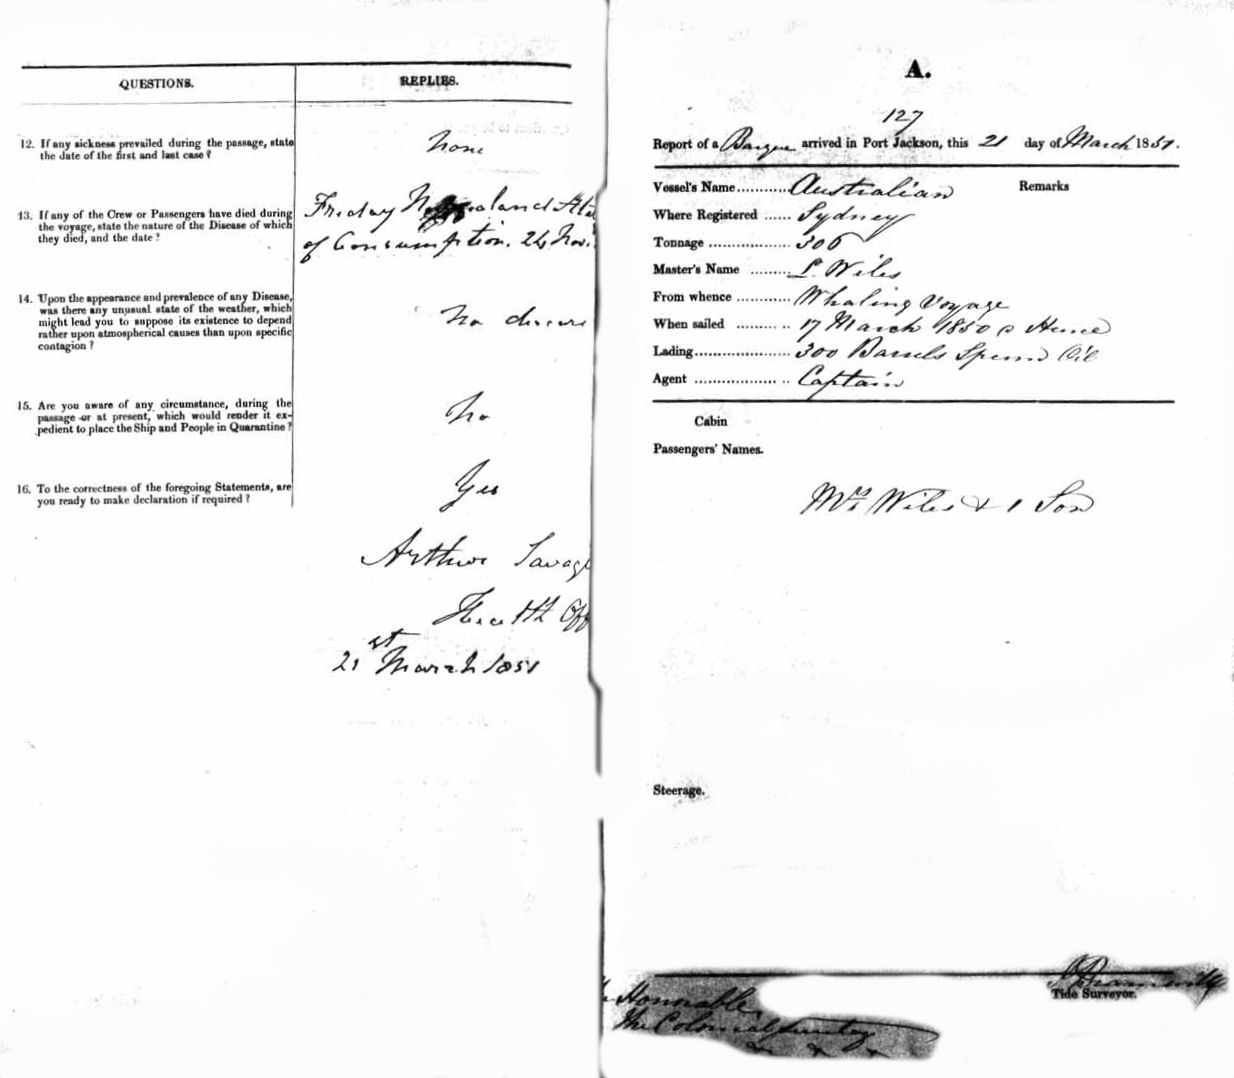 QUESTIONS.
REPLIES.
12. If any sickness prevailed during the passage, state
the date of the first and last case?
None
13. If any of the Crew or Passengers have died during
the voyage, state the nature of the Disease of which
they died, and the date?
Friday
of Consumption. 24 Nov.
14. Upon the appearance and prevalence of any Disease,
was there any unusual state of the weather, which
might lead you to suppose its existence to depend
rather upon atmospherical causes than upon specific
contagion?
No disease
15. Are you aware of any circumstance, during the
passage or at present, which would render it ex-
pedient to place the Ship and People in Quarantine?
No
16. To the correctness of the foregoing Statements, are
you ready to make declaration if required?
Yes
Arthur Savage
Health Off
21st March 1851
A.
127
Report of a Barque arrived in Port Jackson, this 21 day of March 1851.
Vessel's Name........... Australian
Remarks
Where Registered ...... Sydney
Tonnage .................. 306
Master's Name ......... Wiles
From whence ............ Whaling Voyage
When sailed ......... .. 17 March 1850 Hence
Lading..................... 300 Barrels Sperm Oil
Agent .................. .. Captain
Cabin
Passengers' Names.
Mrs Wiles & 1 Son
Steerage.
Tide Surveyor.
Honorable
The Colonial Secretary